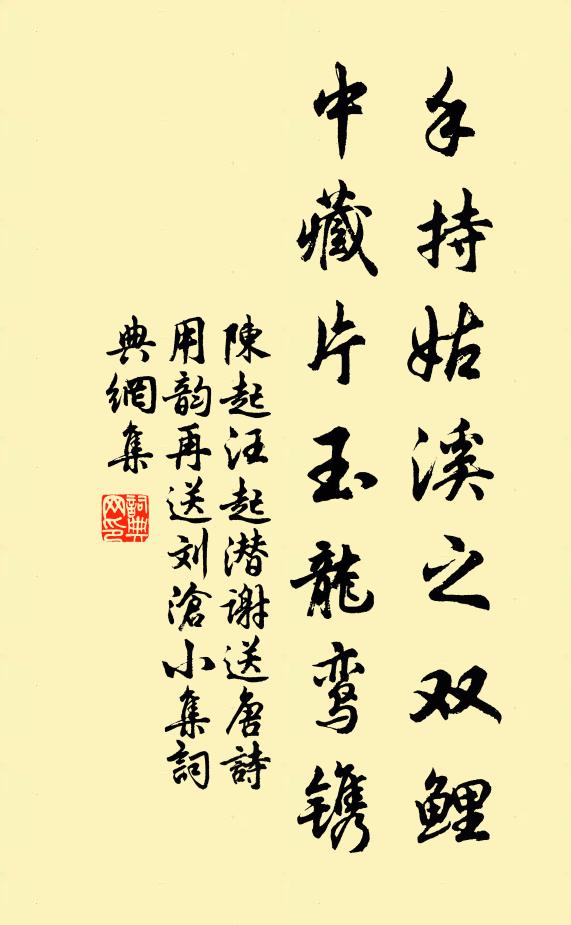 手持姑溪之双鲤
中藏片玉龍鸾镌
陳起汪起潜谢送唐詩
用韵再送刘滄小集詞
典網集
詞典網印